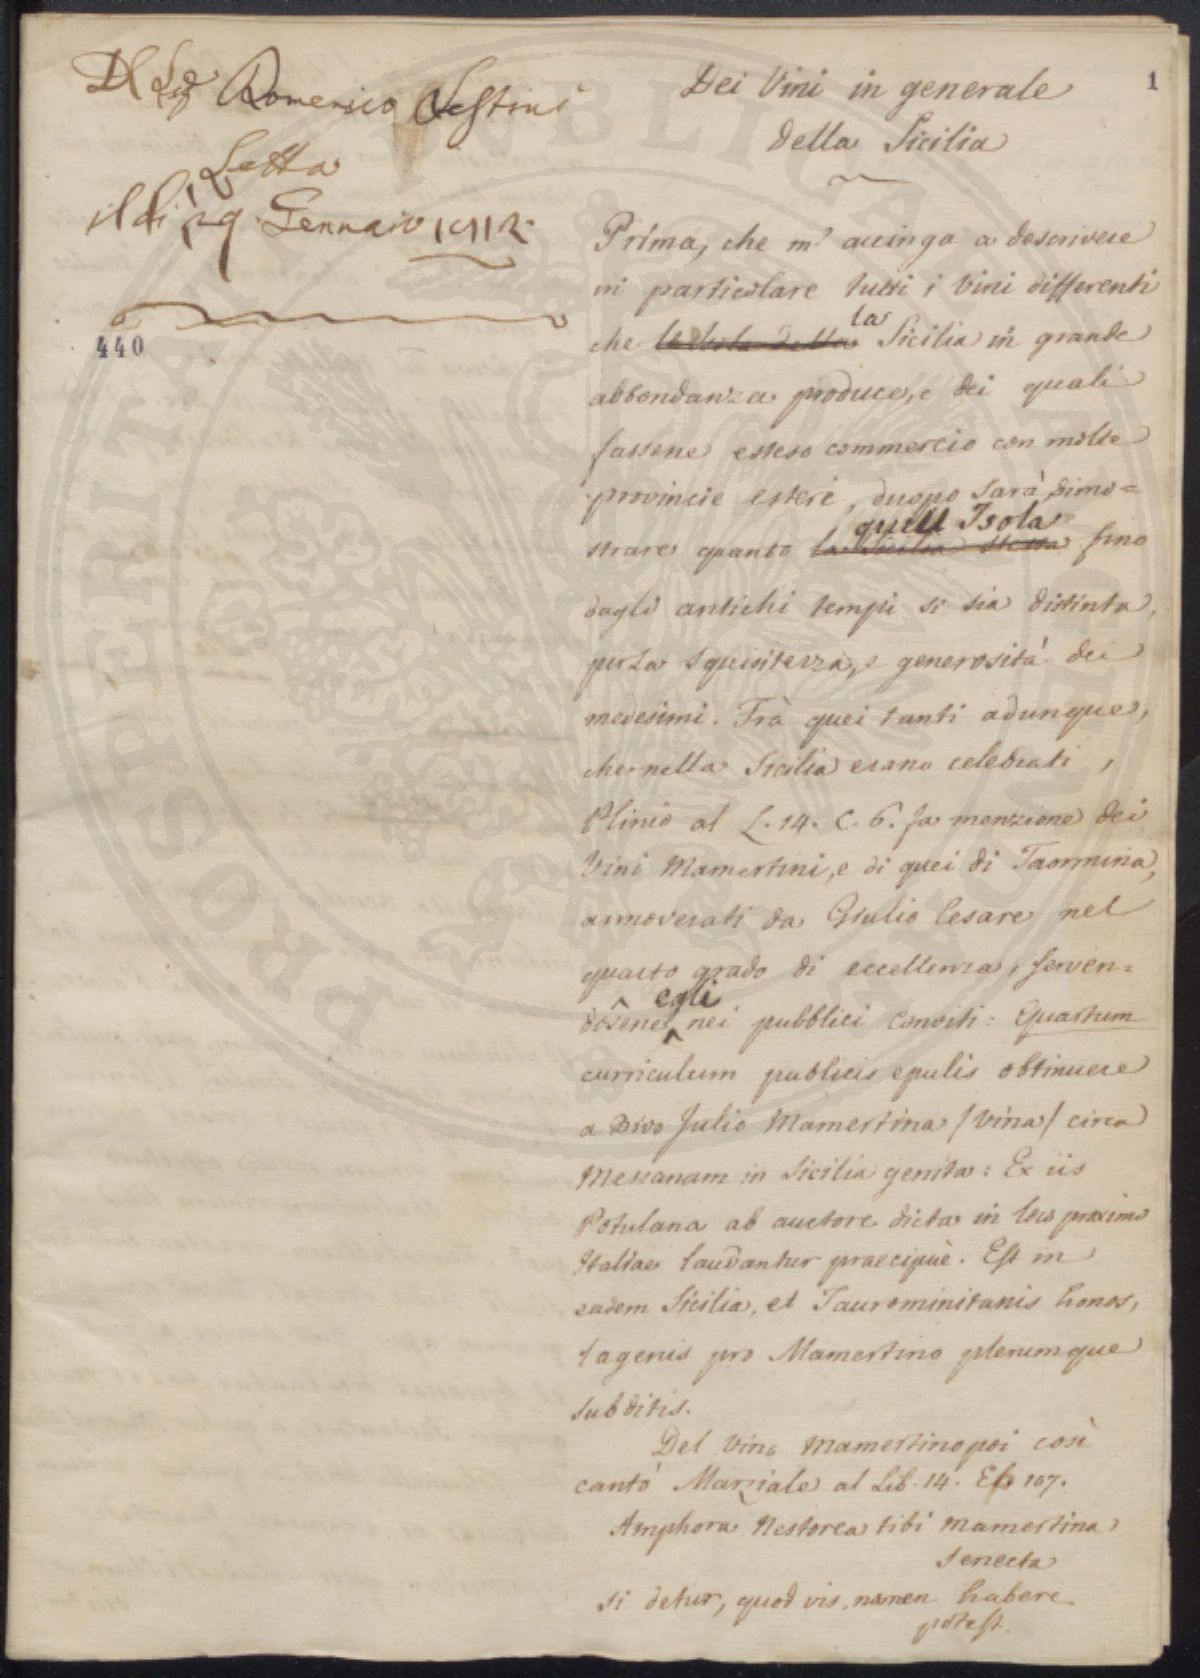 Del Sig Domenico Sestini
Letta
il dì 29. Gennaio 1812.
440
1
Dei Vini in generale
della Sicilia
Prima, che m' accinga a descrivere
in particolare tutti i Vini differenti
che la Sicilia in grande
abbondanza produce, e dei quali
fassene esteso commercio con molte
provincie estere, duopo sarà dimo=
strare quanto la Sicilia stessa quell Isola fino
dagli antichi tempi si sia distinta,
per la squisitezza, e generosità dei
medesimi. Frà quei tanti adunque,
che nella Sicilia erano celebrati,
Plinio al L. 14. C. 6. fa menzione dei
Vini Mamertini, e di quei di Taormina,
annoverati da Giulio Cesare nel
quarto grado di eccellenza, serven=
dosene egli nei pubblici conviti: Quartum
curriculum publicis epulis obtinuere
a Divo Julio Mamertina /vina/ circa
Messanam in Sicilia genita: Ex iis
Potulana ab auctore dicta in loco proximo
Italiae laudantur praecipuè. Est in
eadem Sicilia, et Taurominitanis honos,
lagenis pro Mamertino plerumque
subditis.
Del Vino Mamertino poi così
cantò Marziale al Lib. 14. Ep. 107.
Amphora Nestorea tibi Mamertina
senecta
si detur, quod vis, nomen habere
potest.